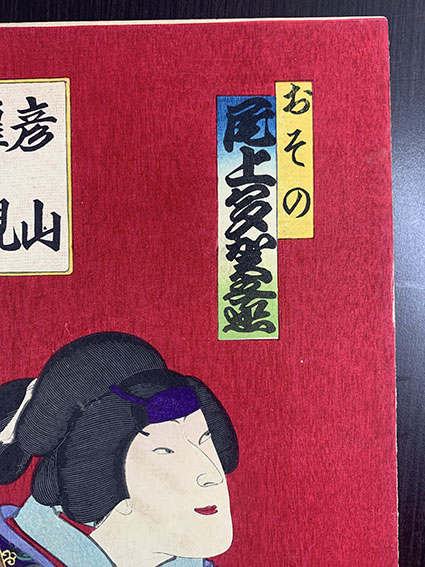 おその
尾上多賀之丞
彦山